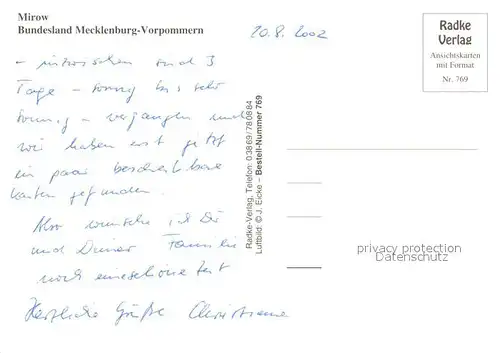 Mirow
Bundesland Mecklenburg-Vorpommern
20.8.2002
- inzwischen sind 3
Tage - sonnig bis sehr
sonnig - vergangen und
wir haben erst jetzt
ein paar beschreibbare
Karten gefunden.
Also wünsche ich Dir
und Deiner Familie
noch eine schöne Zeit
Herzliche Grüße Christiane
Radke-Verlag, Telefon: 03869/780884
Luftbild: © J. Eicke – Bestell-Nummer 769
Radke
Verlag
Ansichtskarten
mit Format
Nr. 769
privacy protection
Datenschutz